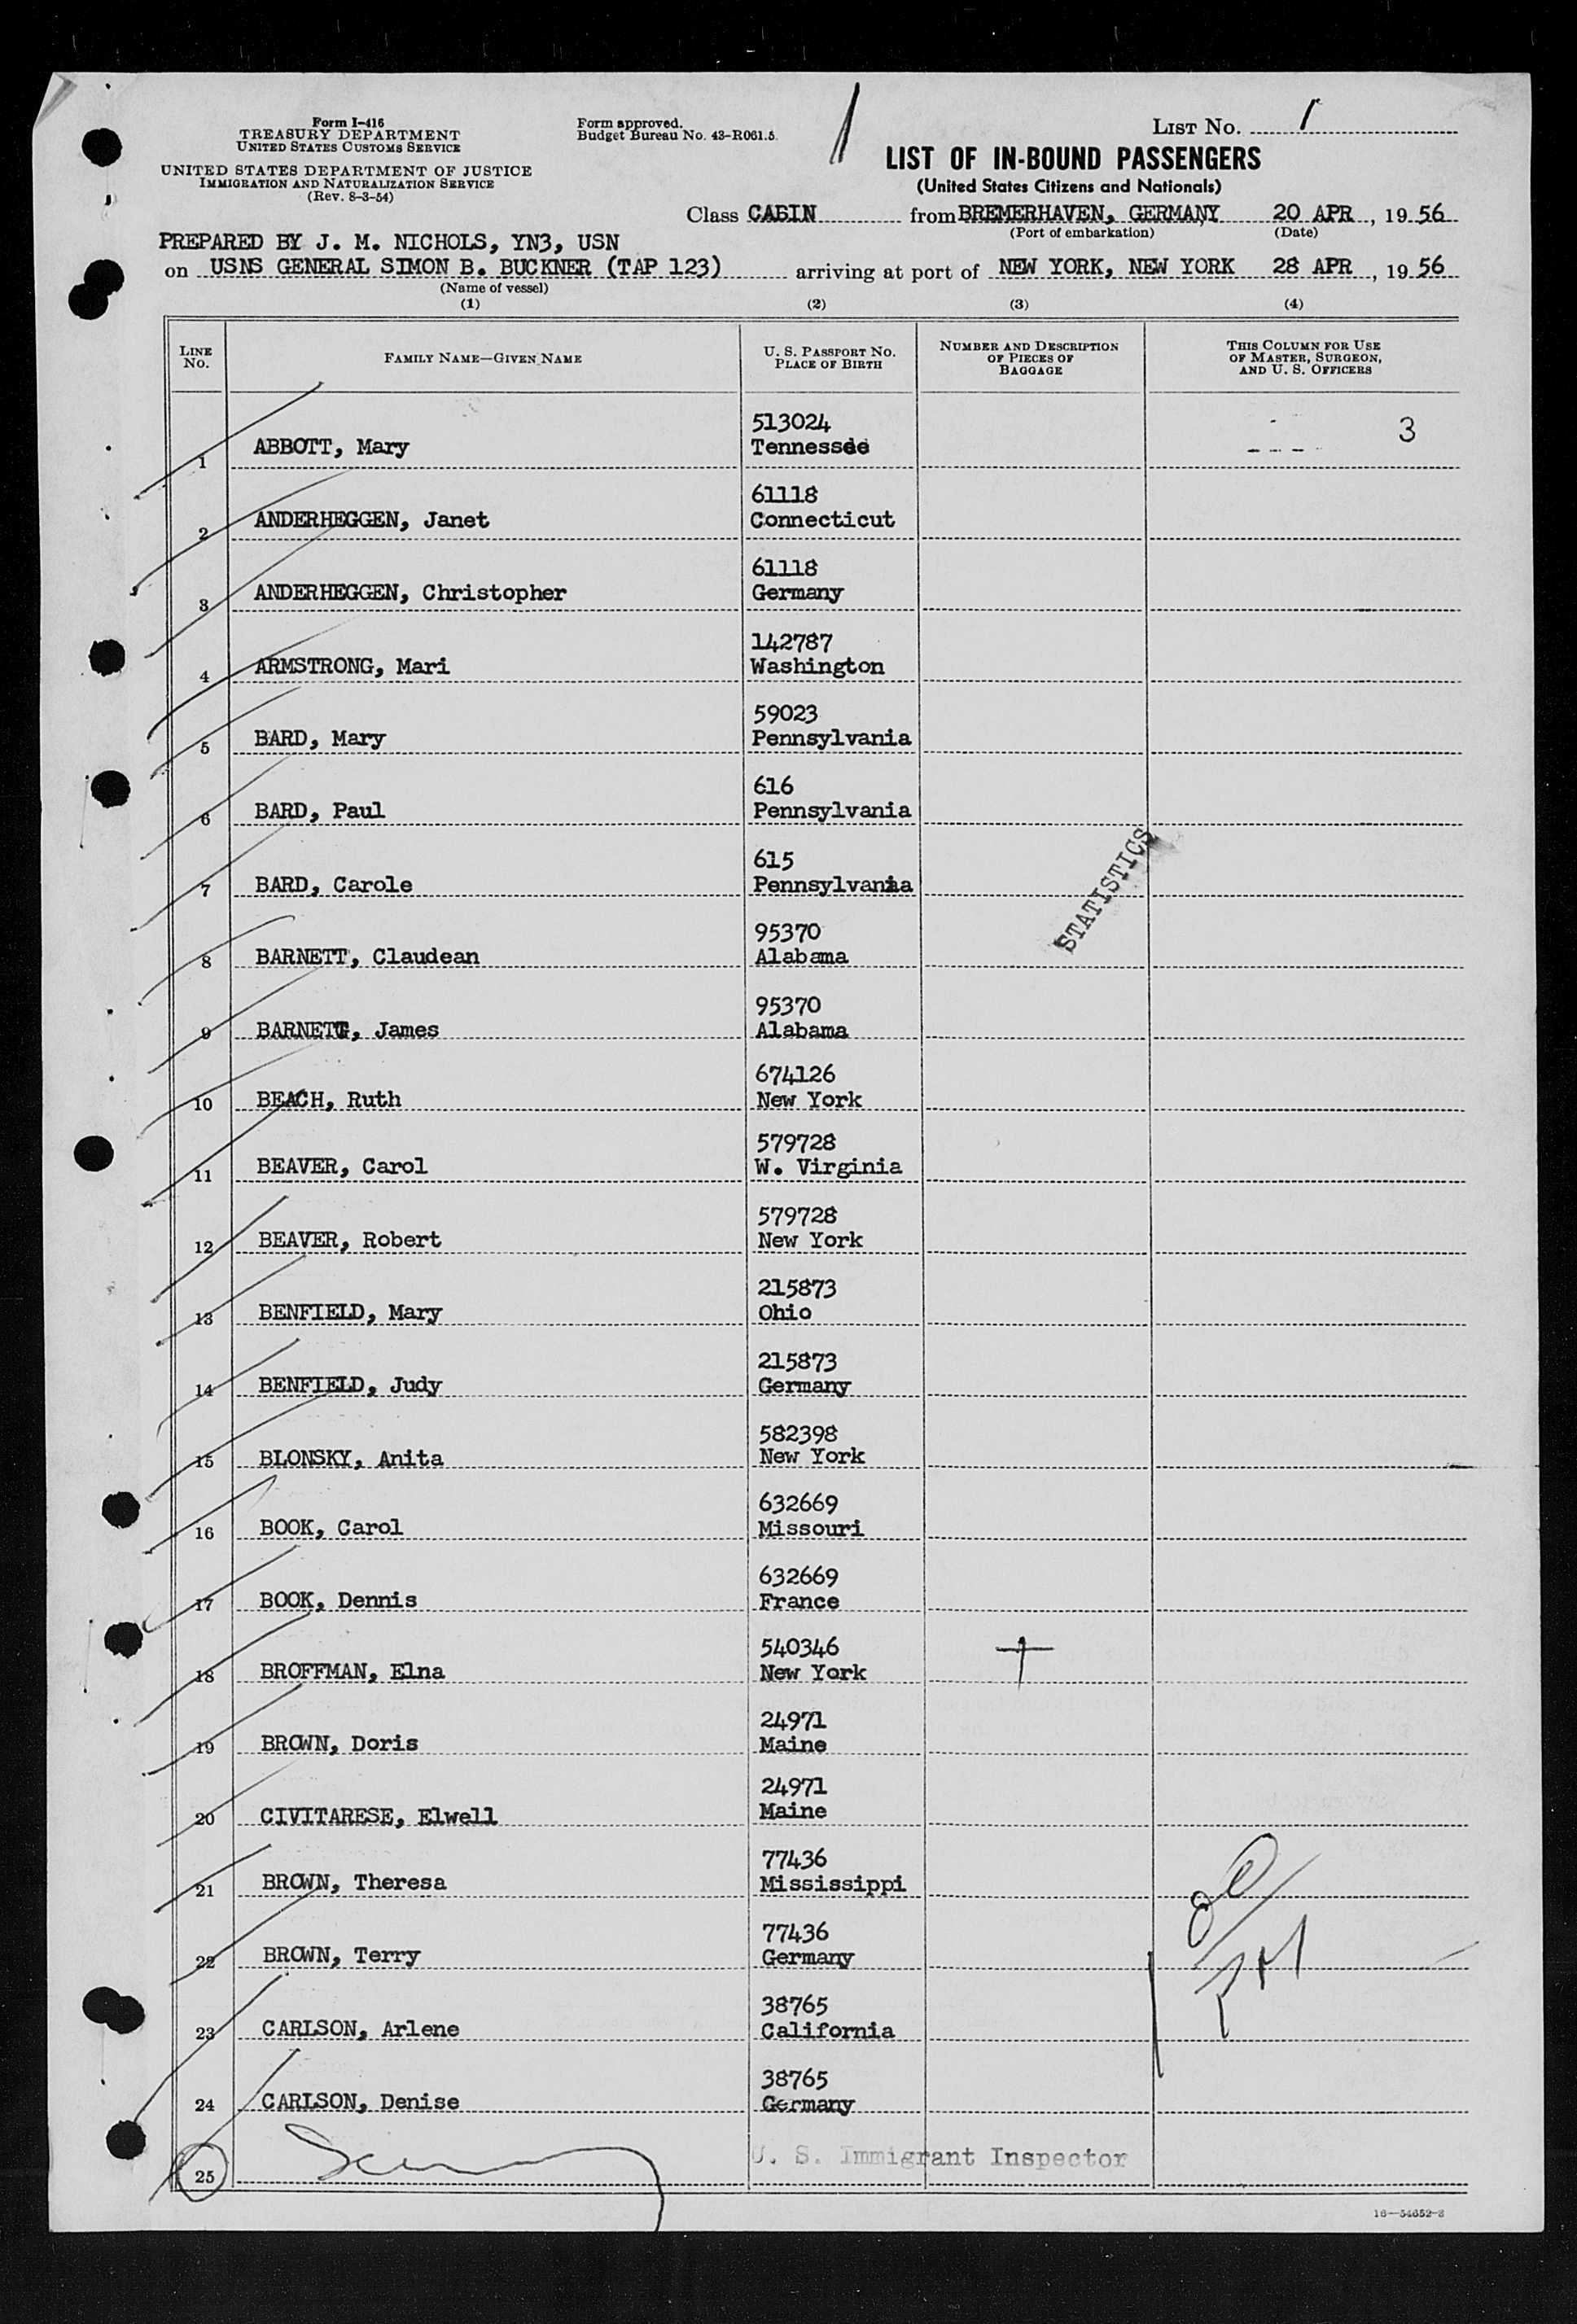 Form I-416
TREASURY DEPARTMENT
UNITED STATES CUSTOMS SERVICE
UNITED STATES DEPARTMENT OF JUSTICE
IMMIGRATION AND NATURALIZATION SERVICE
(Rev. 8-3-54)
Form approved.
Budget Bureau No. 43-R061.5.
1
LIST NO. 1
LIST OF IN-BOUND PASSENGERS
(United States Citizens and Nationals)
Class CABIN from BREMERHAVEN, GERMANY 20 APR, 19 56
(Port of embarkation) (Date)
PREPARED BY J. M. NICHOLS, YN3, USN
on USNS GENERAL SIMON B. BUCKNER (TAP 123) arriving at port of NEW YORK, NEW YORK 28 APR, 19 56
(Name of vessel)
(1) (2) (3) (4)
LINE NO. FAMILY NAME—GIVEN NAME U. S. PASSPORT NO. PLACE OF BIRTH NUMBER AND DESCRIPTION OF PIECES OF BAGGAGE THIS COLUMN FOR USE OF MASTER, SURGEON, AND U. S. OFFICERS
513024 3
1 ABBOTT, Mary Tennessee
61118
2 ANDERHEGGEN, Janet Connecticut
61118
3 ANDERHEGGEN, Christopher Germany
142787
4 ARMSTRONG, Mari Washington
59023
5 BARD, Mary Pennsylvania
616
6 BARD, Paul Pennsylvania
615
7 BARD, Carole Pennsylvania
STATISTICS
95370
8 BARNETT, Claudean Alabama
95370
9 BARNETT, James Alabama
674126
10 BEACH, Ruth New York
579728
11 BEAVER, Carol W. Virginia
579728
12 BEAVER, Robert New York
215873
13 BENFIELD, Mary Ohio
215873
14 BENFIELD, Judy Germany
582398
15 BLONSKY, Anita New York
632669
16 BOOK, Carol Missouri
632669
17 BOOK, Dennis France
540346
18 BROFFMAN, Elna New York
24971
19 BROWN, Doris Maine
24971
20 CIVITARESE, Elwell Maine
77436
21 BROWN, Theresa Mississippi
77436
22 BROWN, Terry Germany
38765
23 CARLSON, Arlene California
38765
24 CARLSON, Denise Germany
25 U. S. Immigrant Inspector
16—54652-2